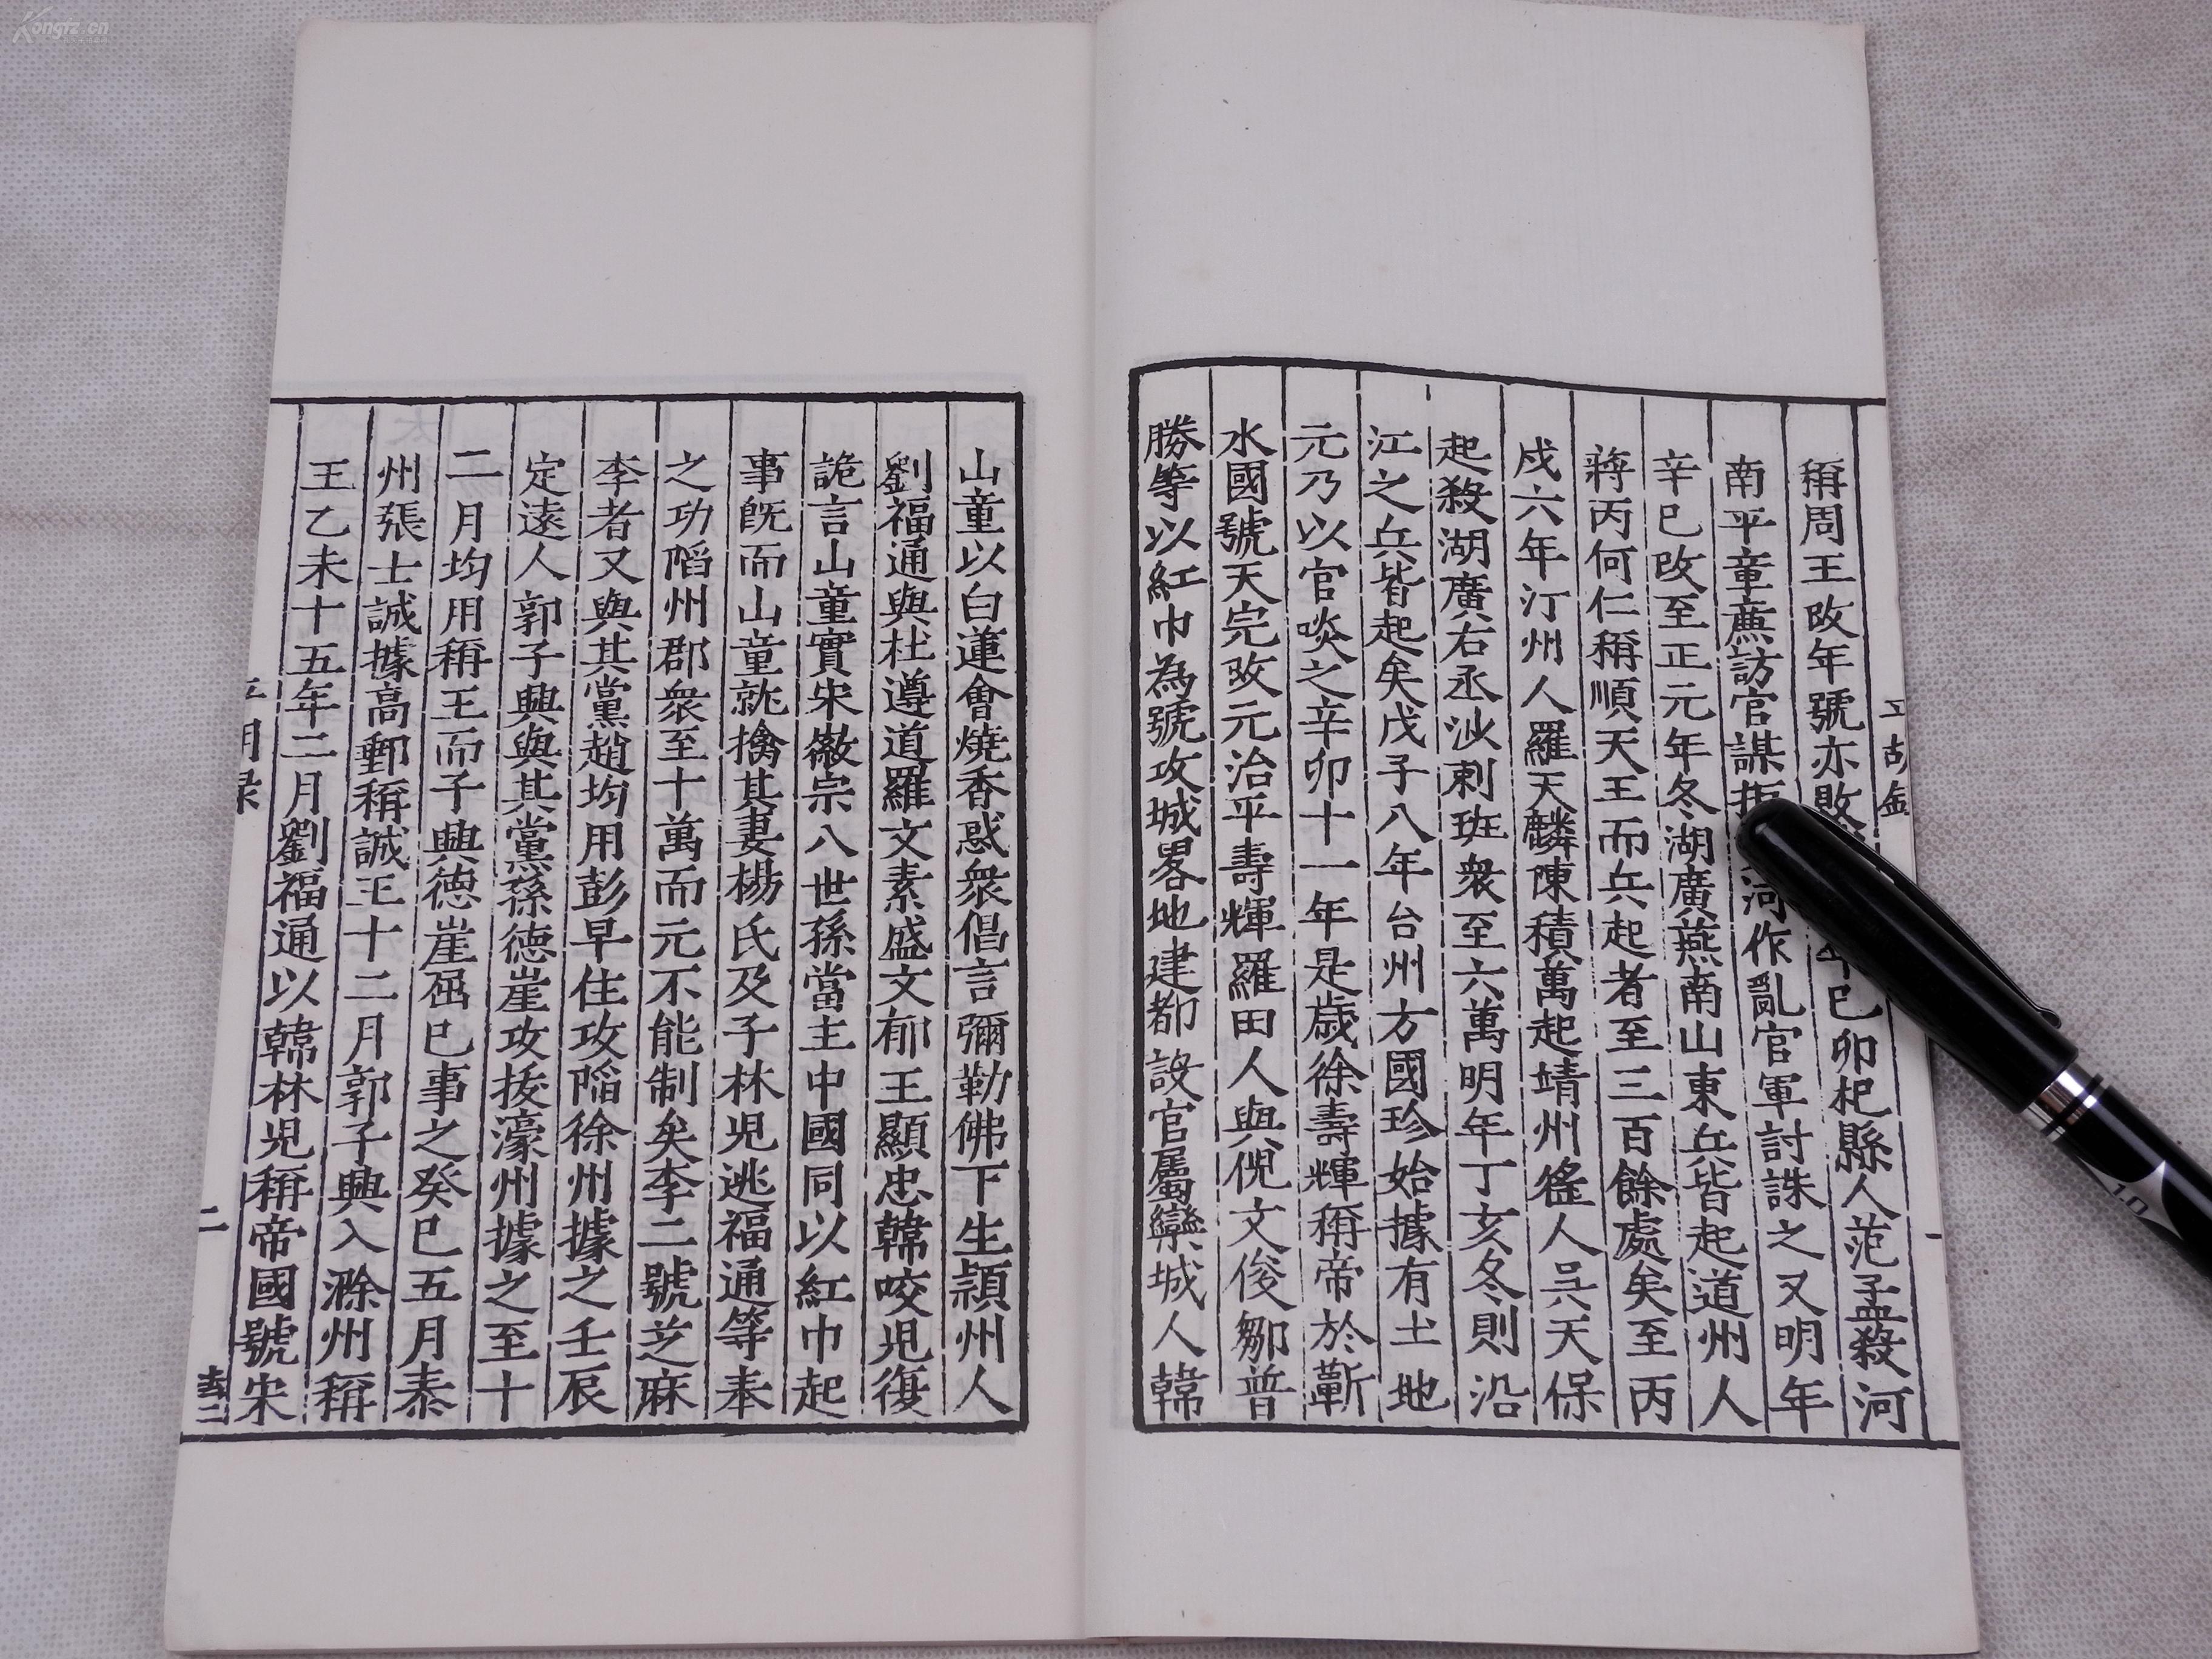 稱周王改年號亦敗
卯杞縣人范孟殺河
南平章廉訪官謀
河作亂官軍討誅之又明年
辛巳改至正元年冬湖廣燕南山東兵皆起道州人
蔣丙何仁稱順天王而兵起者至三百餘處矣至丙
戍六年汀州人羅天麟陳積萬起靖州徭人吳天保
起殺湖廣右丞沙剌班衆至六萬明年丁亥冬則沿
江之兵皆起矣戊子八年台州方國珍始據有土地
元乃以官啖之辛卯十一年是歲徐壽輝稱帝於蘄
水國號天完改元治平壽輝羅田人與倪文俊鄒普
勝等以紅巾為號攻城畧地建都設官屬欒城人韓
山童以白蓮會燒香惑衆倡言彌勒佛下生頴州人
劉福通與杜遵道羅文素盛文郁王顯忠韓咬兒復
詭言山童實宋徽宗八世孫當主中國同以紅巾起
事旣而山童就擒其妻楊氏及子林兒逃福通等奉
之功陷州郡衆至十萬而元不能制矣李二號芝麻
李者又與其黨趙均用彭早住攻陷徐州據之壬辰
定遠人郭子興與其黨孫德崖攻拔濠州據之至十
二月均用稱王而子興德崖屈已事之癸巳五月泰
州張士誠據高郵稱誠王十二月郭子興入滁州稱
王乙未十五年二月劉福通以韓林兒稱帝國號宋
二